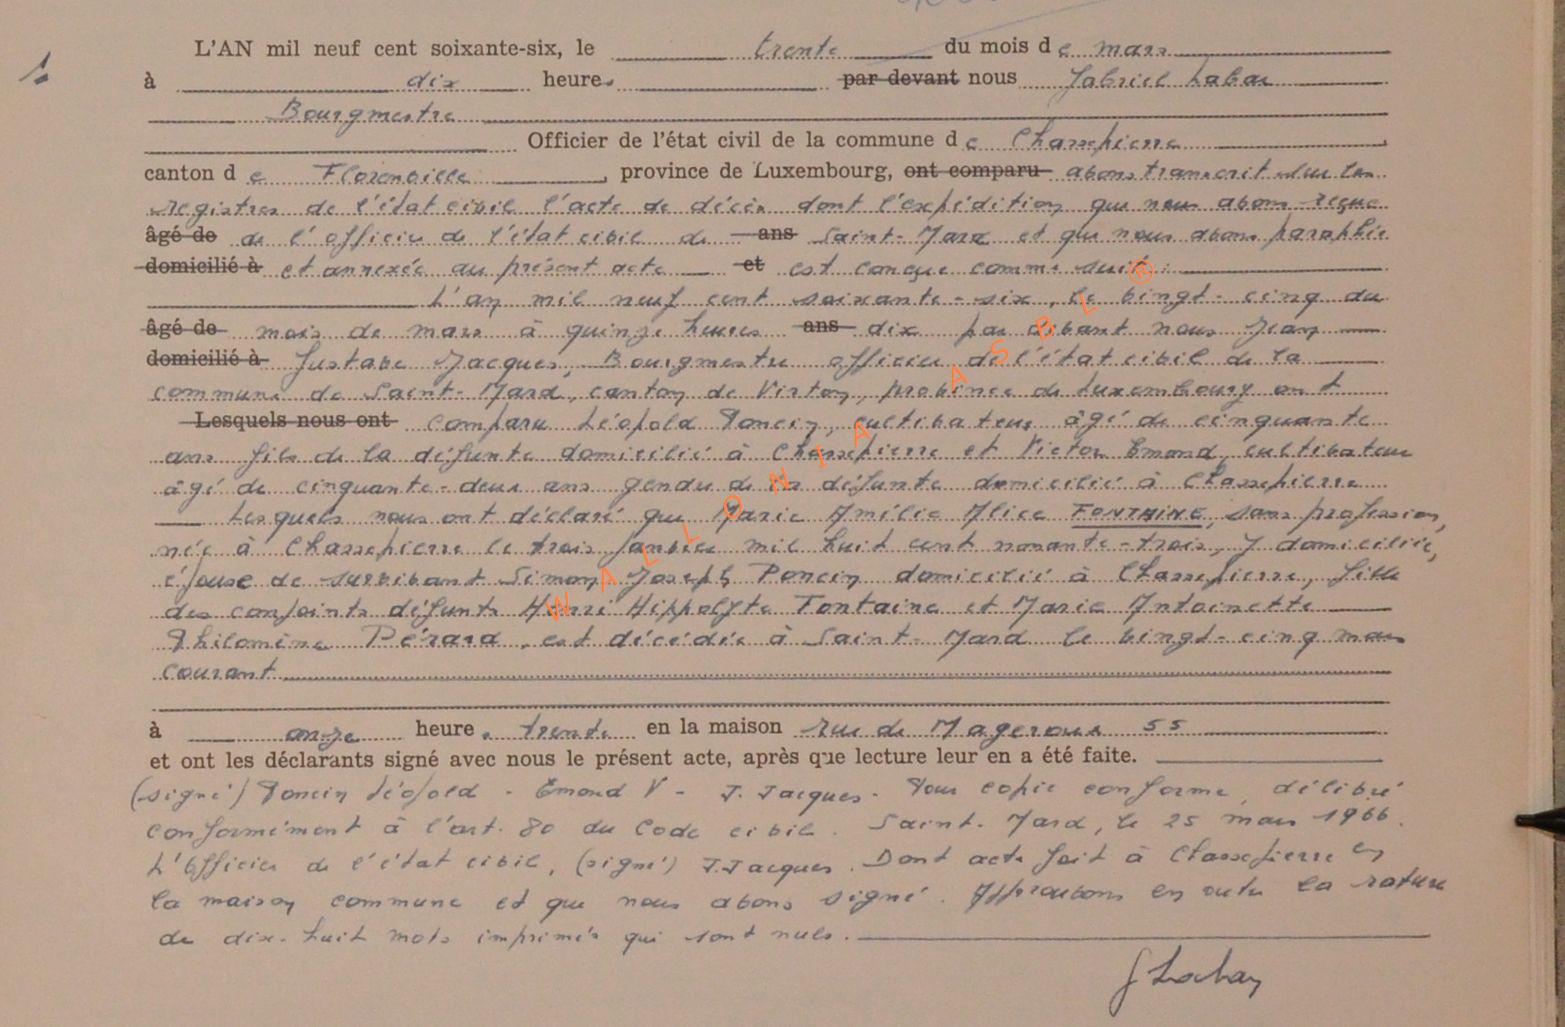 L'AN mil neuf cent soixante-six, le trente du mois de mars
à dix heures par devant nous Gabriel Labar
Bourgmestre
Officier de l'état civil de la commune de Chassepierre
canton de Florenville, province de Luxembourg, ont comparu avons transcrit sur les
registres de l'état civil l'acte de décès dont l'expédition que nous avons reçue
âgé de de l'officier de l'état civil de ans Saint-Mard et que nous avons paraphée
domicilié à et annexée au présent acte et est conçue comme suit :
L'an mil neuf cent soixante-six, le vingt-cinq du
âgé de mois de mars à quinze heures ans dix par devant nous Jean
domicilié à Gustave Jacques, Bourgmestre officier de l'état civil de la
commune de Saint-Mard, canton de Virton, province de Luxembourg ont
Lesquels nous ont comparu Léopold Poncin, cultivateur âgé de cinquante
ans fils de la défunte domicilié à Chassepierre et Victor Emond, cultivateur
âgé de cinquante-deux ans gendre de la défunte domicilié à Chassepierre
Lesquels nous ont déclaré que Marie Amélie Alice FONTAINE, sans profession,
née à Chassepierre le trois janvier mil huit cent nonante-trois, y domiciliée,
épouse de survivant Simon Joseph Poncin domicilié à Chassepierre, fille
des conjoints défunts Henri Hippolyte Fontaine et Marie Antoinette
Philomène Pérard, est décédée à Saint-Mard le vingt-cinq mars
courant
à onze heures trente en la maison rue de Magerous 55
et ont les déclarants signé avec nous le présent acte, après que lecture leur en a été faite.
(signé) Poncin Léopold - Emond V - J. Jacques - Pour copie conforme, délivré
conformément à l'art. 80 du Code civil. Saint-Mard, le 25 mars 1966.
L'Officier de l'état civil, (signé) J. Jacques. Dont acte fait à Chassepierre en
la maison commune et que nous avons signé. Approuvons en outre la rature
de dix-huit mots imprimés qui sont nuls.
WALLONIA ASBL ®